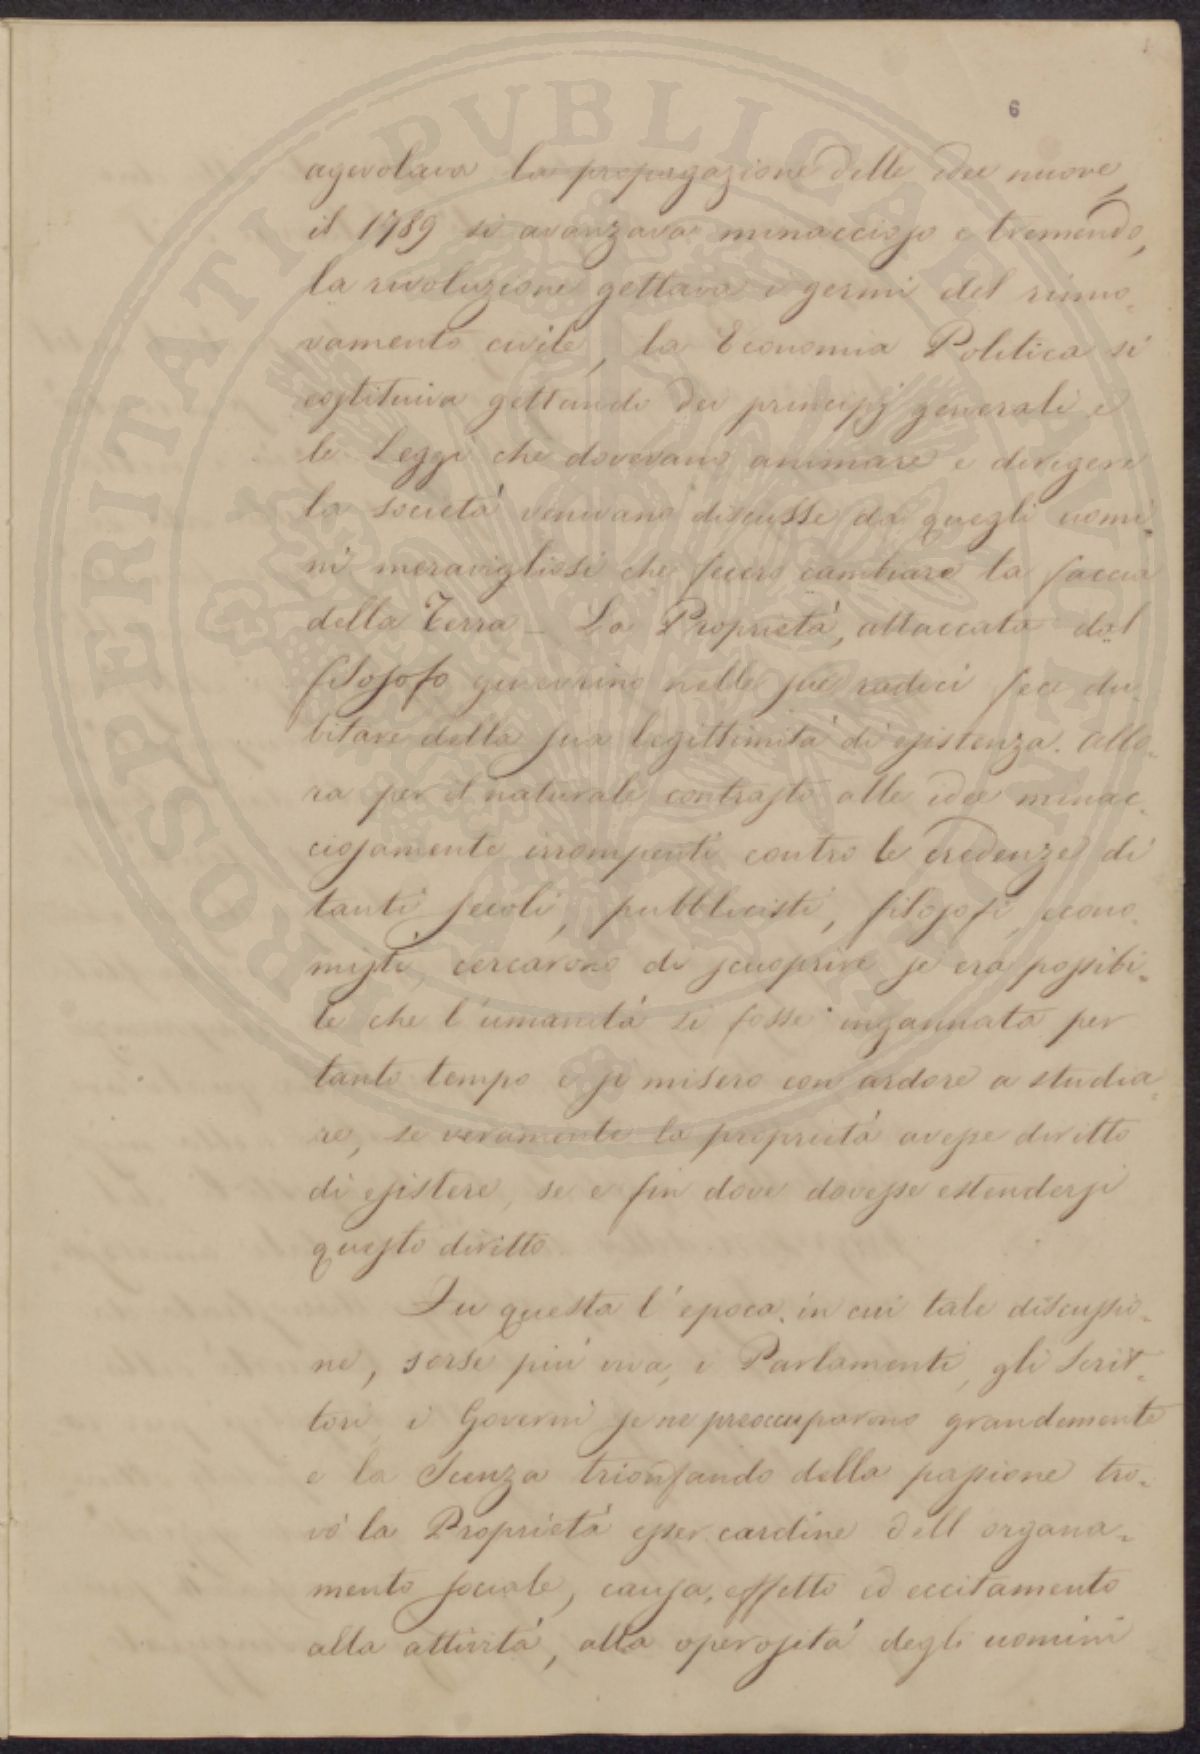 6
agevolava la propagazione delle idee nuove,
il 1789 si avanzava minaccioso e tremendo,
la rivoluzione gettava i germi del rinno-
vamento civile, la Economia Politica si
costituiva gettando dei principj generali e
le Leggi che dovevano animare e dirigere
la società venivano discusse da quegli uomi-
ni meravigliosi che fecero cambiare la faccia
della Terra – La Proprietà, attaccata dal
filosofo ginevrino nelle sue radici fece du-
bitare della sua legittimità di esistenza. Allo-
ra per il naturale contrasto alle idee minac-
ciosamente irrompenti contro le credenze di
tanti secoli, pubblicisti, filosofi, econo-
misti, cercarono di scuoprire se era possibi-
le che l'umanità si fosse ingannata per
tanto tempo e si misero con ardore a studia-
re, se veramente la proprietà avesse diritto
di esistere, se e fin dove dovesse estendersi
questo diritto
Fu questa l'epoca in cui tale discussio-
ne, sorse più viva, i Parlamenti, gli Scrit-
tori i Governi se ne preoccuparono grandemente
e la Scenza trionfando della passione tro-
vò la Proprietà esser cardine dell organa-
mento sociale, causa, effetto ed eccitamento
alla attività, alla operosità degli uomini
PROSPERITATI PVBLICAE AVGENDAE